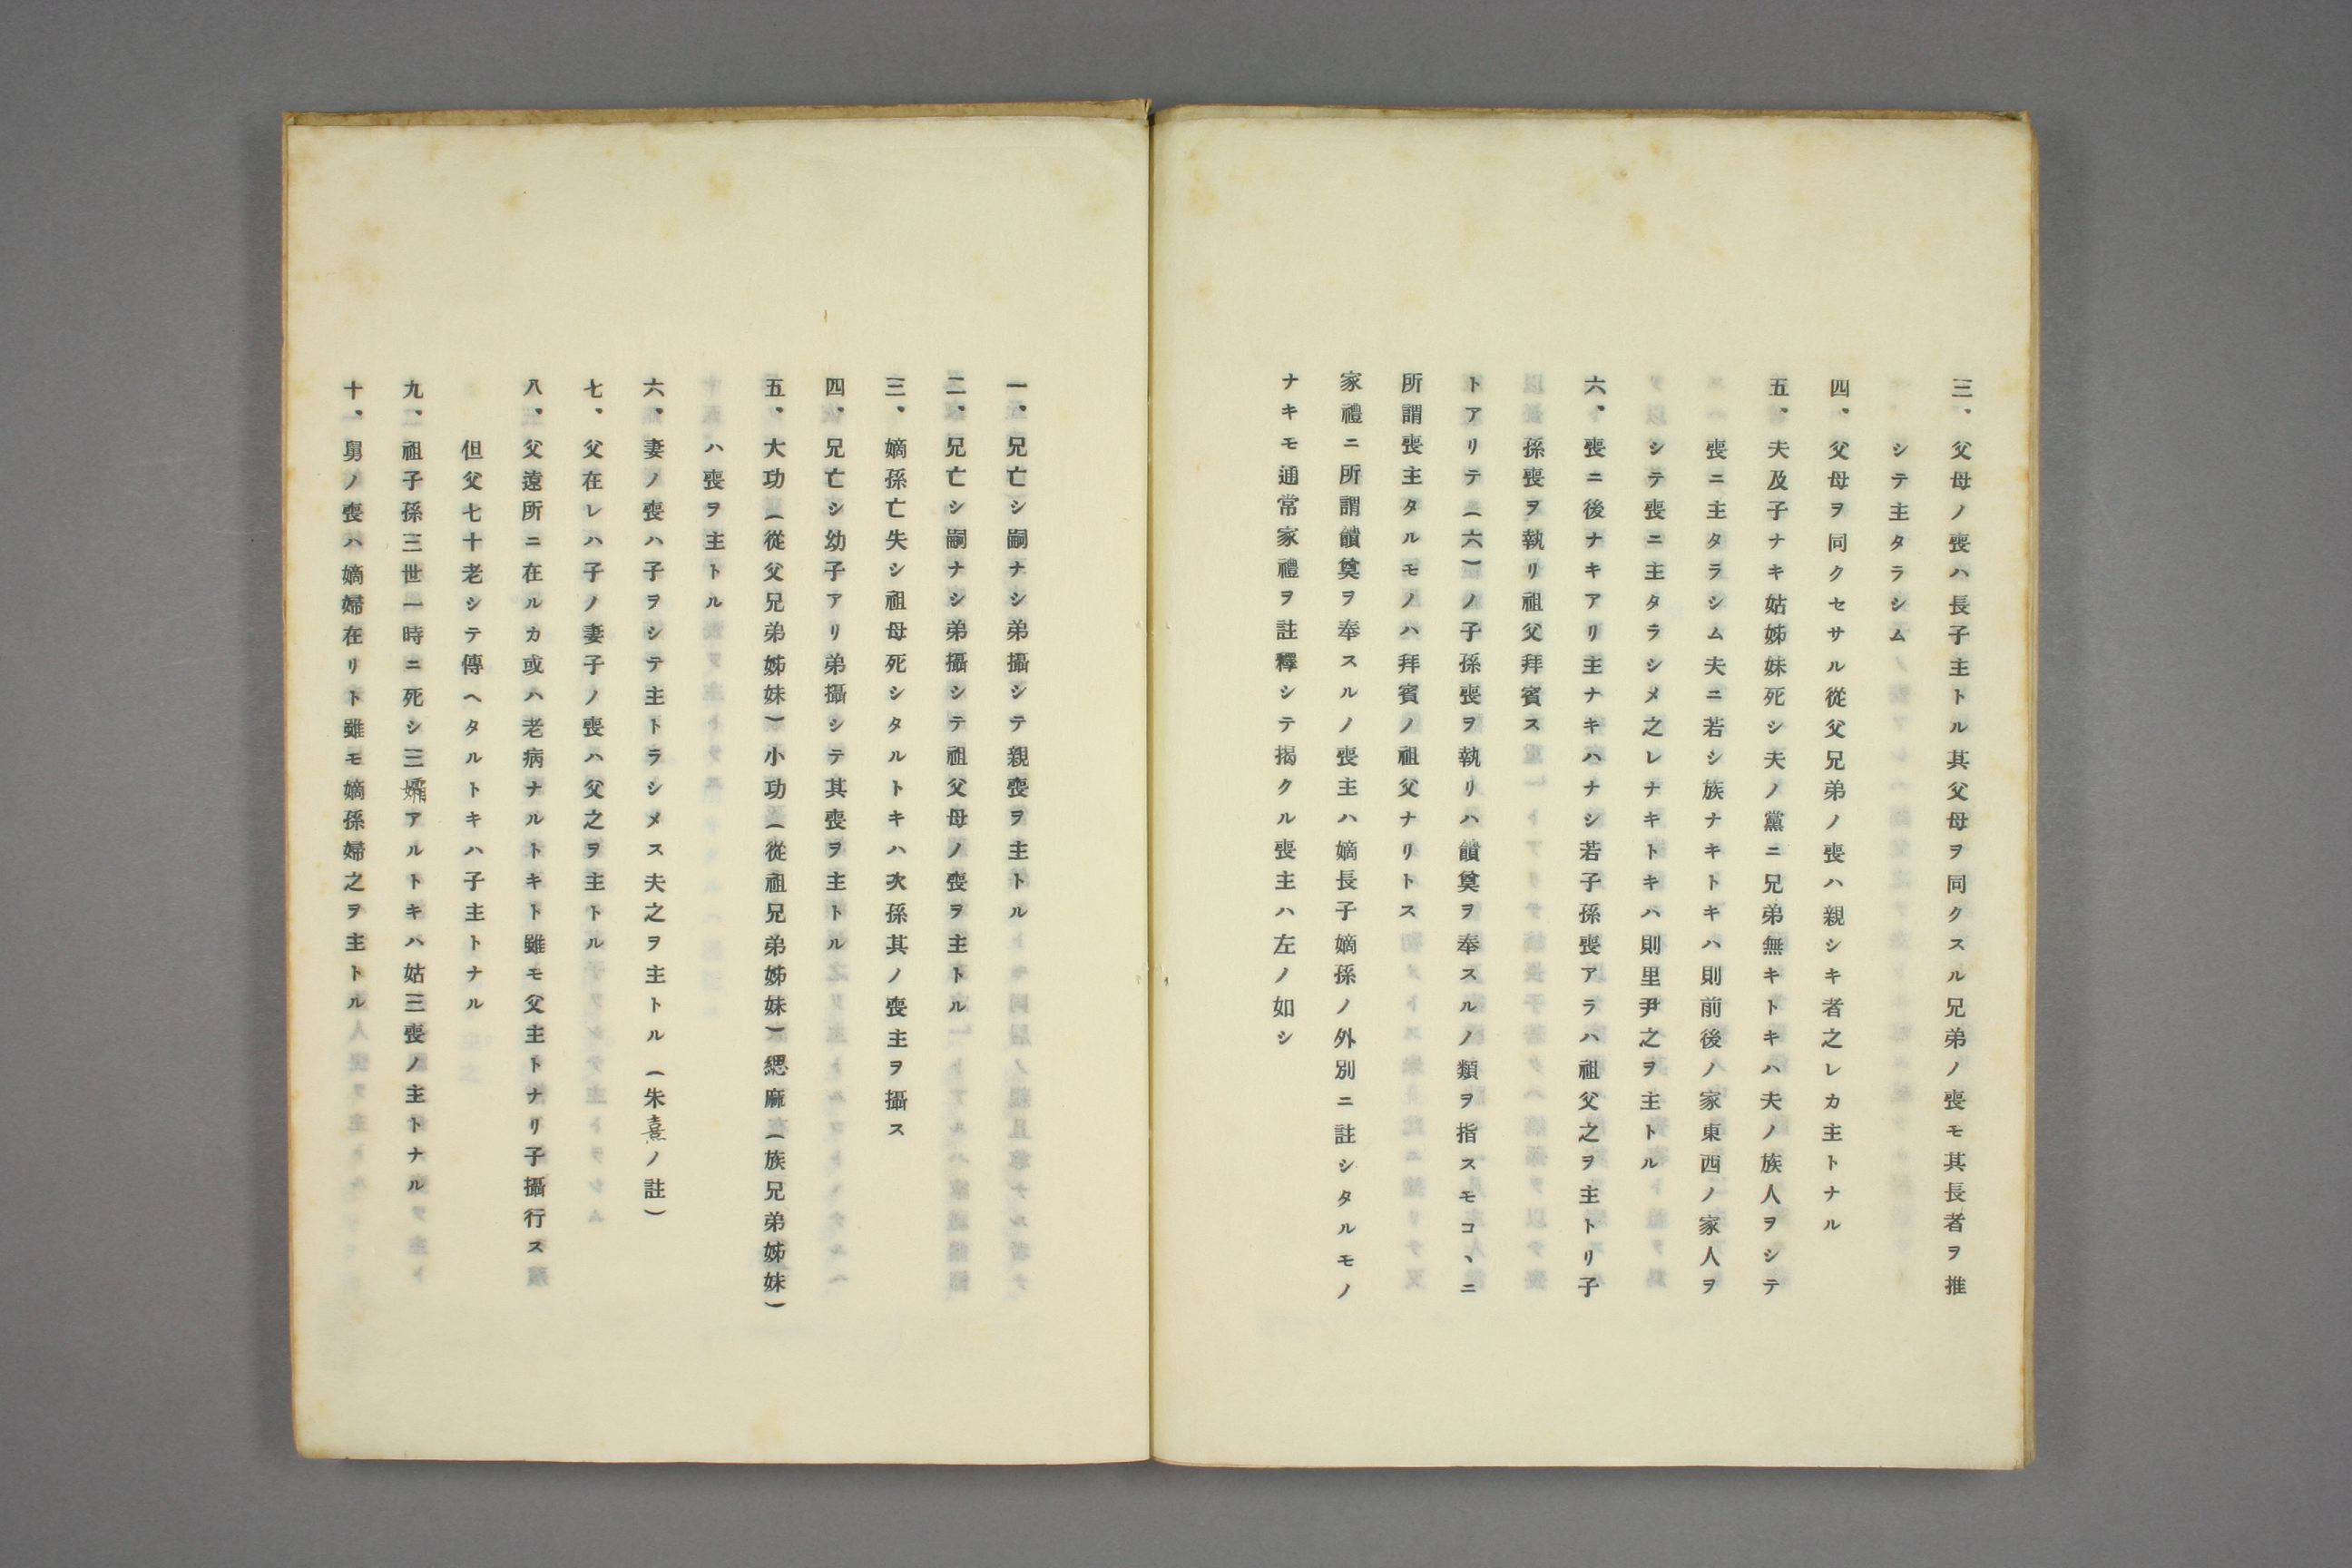 三、父母ノ喪ハ長子主トル其父母ヲ同クスル兄弟ノ喪モ其長者ヲ推
シテ主タラシム
四、父母ヲ同クセサル從父兄弟ノ喪ハ親シキ者之レカ主トナル
五、夫及子ナキ姑姊妹死シ夫ノ黨ニ兄弟無キトキハ夫ノ族人ヲシテ
喪ニ主タラシム夫ニ若シ族ナキトキハ則前後ノ家東西ノ家人ヲ
シテ喪ニ主タラシメ之レナキトキハ則里尹之ヲ主トル
六、喪ニ後ナキアリ主ナキハナシ若子孫喪アラハ祖父之ヲ主トリ子
孫喪ヲ執リ祖父拜賓ス
トアリテ(六)ノ子孫喪ヲ執リハ饋奠ヲ奉スルノ類ヲ指スモコヽニ
所謂喪主タルモノハ拜賓ノ祖父ナリトス
家禮ニ所謂饋奠ヲ奉スルノ喪主ハ嫡長子嫡孫ノ外別ニ註シタルモノ
ナキモ通常家禮ヲ註釋シテ揭クル喪主ハ左ノ如シ
一、兄亡シ嗣ナシ弟攝シテ親喪ヲ主トル
二、兄亡シ嗣ナシ弟攝シテ祖父母ノ喪ヲ主トル
三、嫡孫亡失シ祖母死シタルトキハ次孫其ノ喪主ヲ攝ス
四、兄亡シ幼子アリ弟攝シテ其喪ヲ主トル
五、大功(從父兄弟姊妹)小功(從祖兄弟姊妹)緦麻(族兄弟姊妹)
ハ喪ヲ主トル
六、妻ノ喪ハ子ヲシテ主トラシメス夫之ヲ主トル(朱熹ノ註)
七、父在レハ子ノ妻子ノ喪ハ父之ヲ主トル
八、父遠所ニ在ルカ或ハ老病ナルトキト雖モ父主トナリ子攝行ス
但父七十老シテ傳ヘタルトキハ子主トナル
九、祖子孫三世一時ニ死シ三孀アルトキハ姑三喪ノ主トナル
十、舅ノ喪ハ嫡婦在リト雖モ嫡孫婦之ヲ主トル